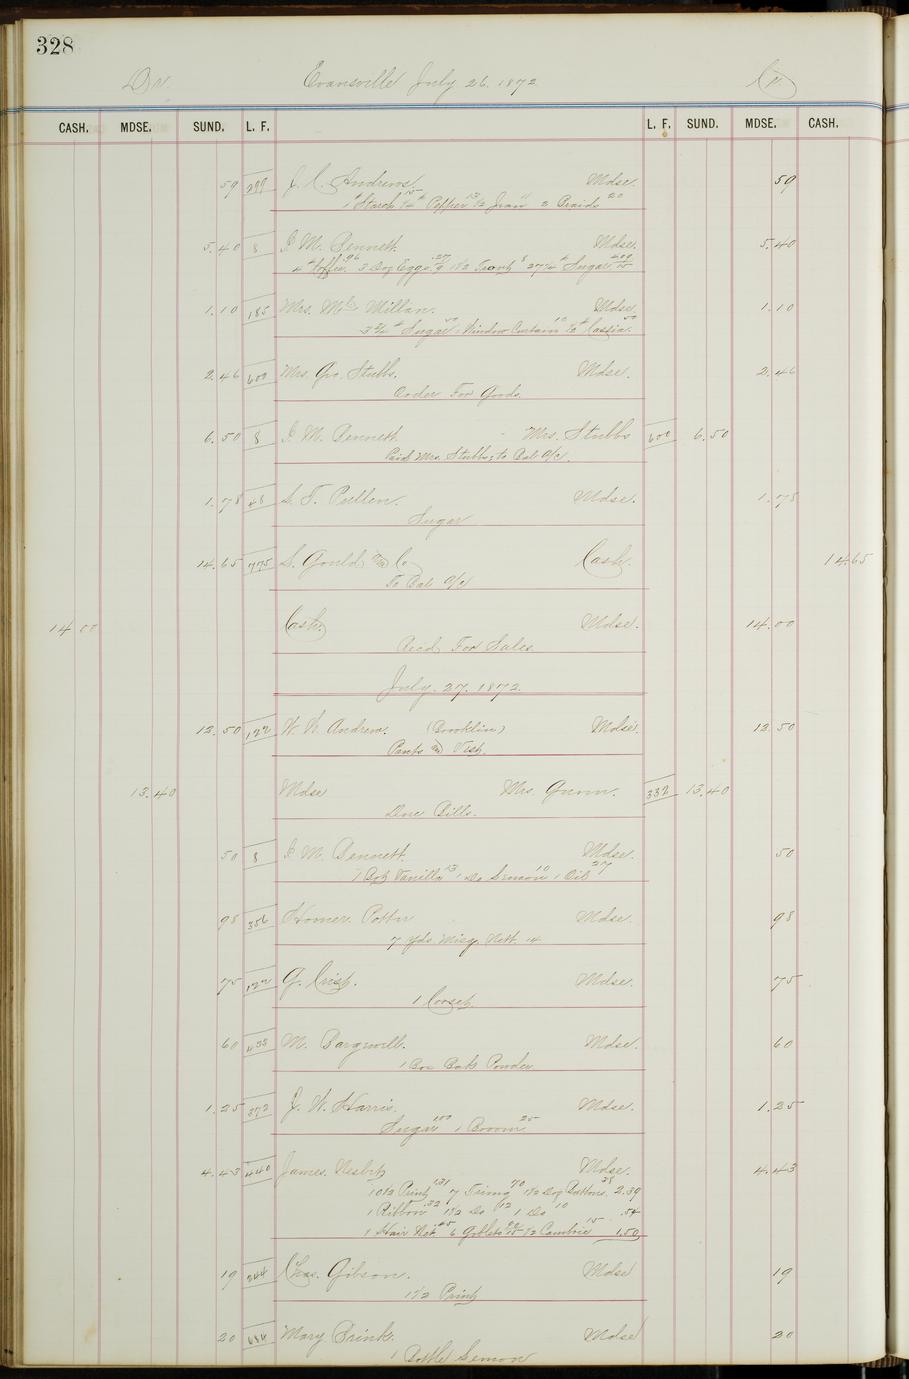 328
Dr. Evansville July 26. 1872. Cr.
CASH. MDSE. SUND. L. F. L. F. SUND. MDSE. CASH.
59 299 J. C. Andrews. Mdse. 59
1# Starch 15 1/4# Pepper 13 1/2 2 Braids 20
5.40 8 I. M. Bennett. Mdse. 5.40
4# Coffee 96 3 Doz Eggs 27 27 1/4# Sugar 400
1.10 185 Mrs. Mc Millan. Mdse. 1.10
3 3/4# Sugar 50 Window Curtain 10 1/2# Cassia 50
2.46 600 Mrs. Geo. Stubbs. Mdse. 2.46
Order For Goods.
6.50 8 I. M. Bennett. Mrs. Stubbs 600 6.50
Paid Mrs. Stubbs, to Bal a/c.
1.78 48 S. T. Pullen. Mdse. 1.78
Sugar
14.65 775 S. Gould and Co Cash. 14.65
To Bal a/c
14 00 Cash. Mdse. 14.00
Recd For Sales.
July. 27. 1872.
12.50 122 W. W. Andrew. (Brooklin) Mdse. 12.50
Pants and Vest.
13.40 Mdse Mrs. Gunn. 332 13.40
Due Bills.
50 8 I. M. Bennett. Mdse. 50
1 Bot Vanilla 13 1 Do Lemon 10 1 Oil 27
98 356 Homer. Potter Mdse. 98
7 yds. Misq. Nett. 14
75 122 G. Crisp. Mdse. 75
1 Corset.
60 438 M. Bargwell. Mdse. 60
1 Box Bak Powder
1.25 372 J. W. Harris. Mdse. 1.25
Sugar 100 1 Broom 25
4.43 440 James. Nesbit Mdse. 4.43
10 1/2 Print 131 7 Trimg 70 1 1/2 Doz Buttons 38 2.39
1 Ribbon 32 1 1/2 Do 12 1 Do 10 .54
1 Hair Net 45 6 Goblets 90 1/2 Cambric 15 1.50
19 244 Chas. Gibson. Mdse 19
1 1/2 Print
20 686 Mary Brink. Mdse 20
1 Bottle Lemon